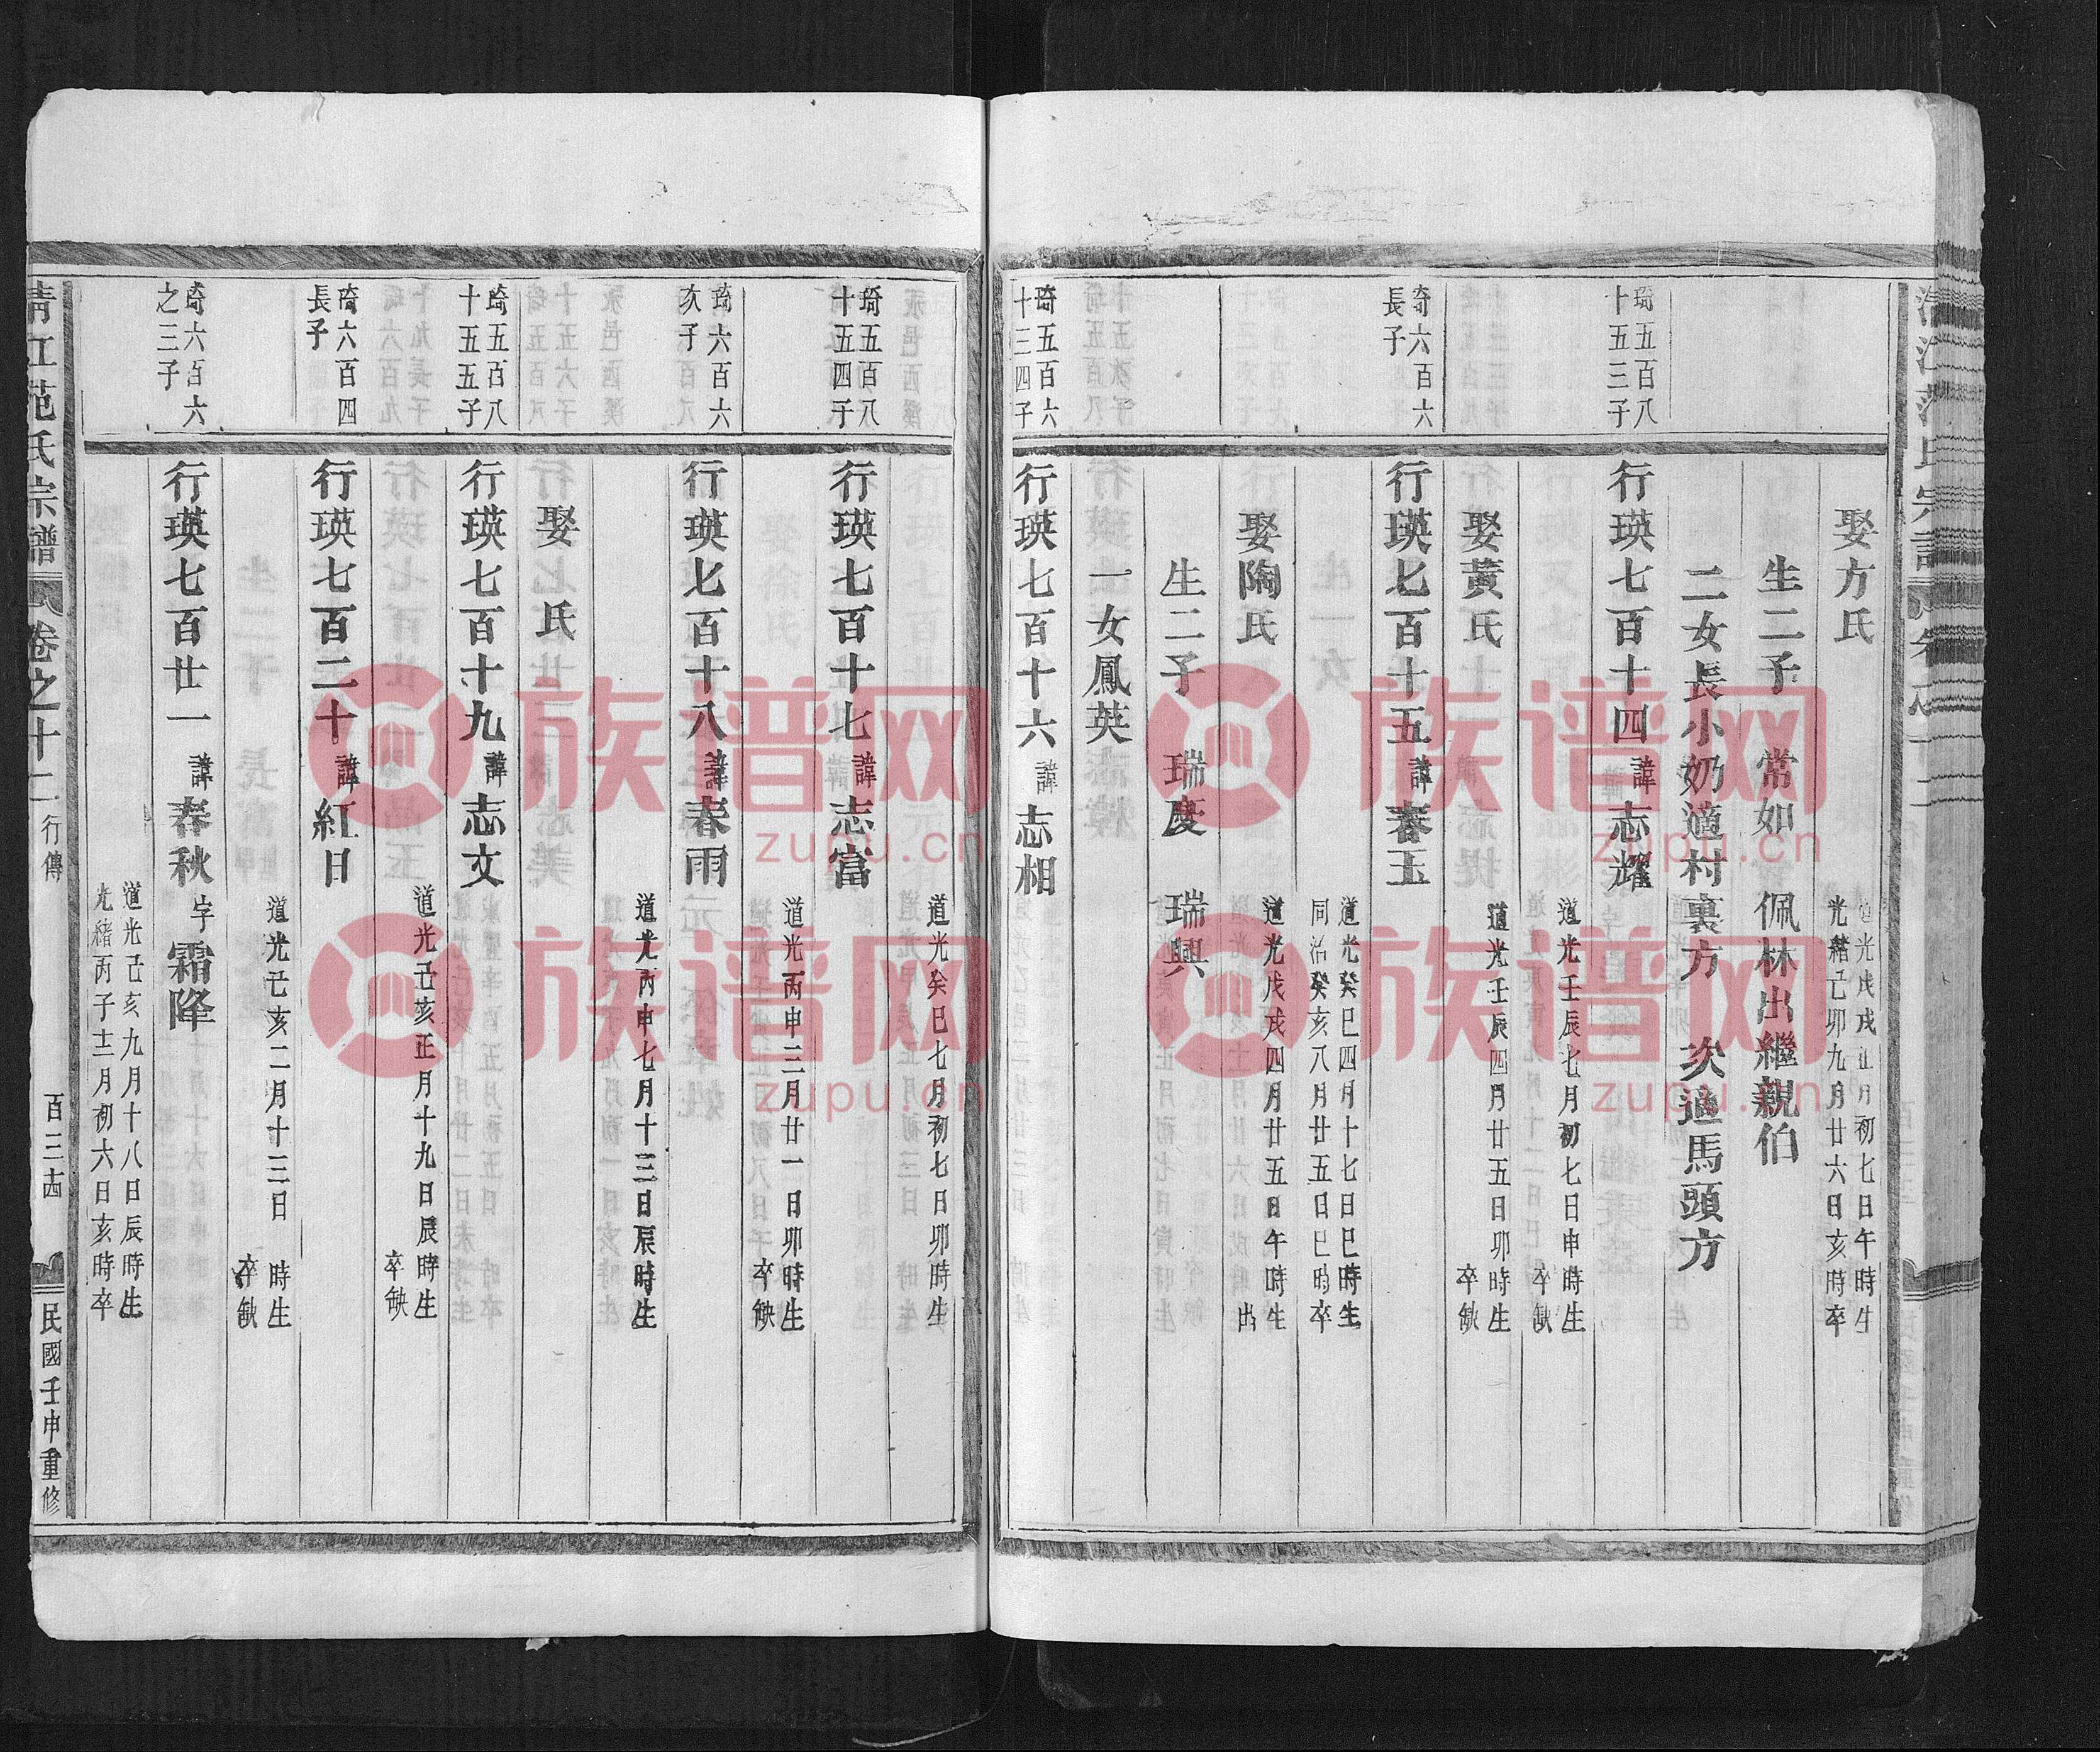 娶方氏
光戊戌正月初七日午時生
光緒己卯九月廿六日亥時卒
生二子 常如 佩林出繼親伯
二女長小奶適村裏方 次適馬頭方
琦五百八
十五三子
行瑛七百十四諱志耀
道光壬辰七月初七日申時生
卒缺
娶黃氏
道光壬辰四月廿五日卯時生
卒缺
琦六百六
長子
行瑛七百十五諱春玉
道光癸巳四月十七日巳時生
同治癸亥八月廿五日巳時卒
娶陶氏
道光戊戌四月廿五日午時生
出
生二子 瑞慶 瑞興
一女鳳英
琦五百六
十三四子
行瑛七百十六諱志相
道光癸巳七月初七日卯時生
琦五百八
十五四子
行瑛七百十七諱志富
道光丙申三月廿一日卯時生
卒缺
琦六百六
次子
行瑛七百十八諱春雨
道光丙申七月十三日辰時生
娶 氏
琦五百八
十五五子
行瑛七百十九諱志文
道光己亥正月十九日辰時生
卒缺
琦六百四
長子
行瑛七百二十諱紅日
道光己亥二月十三日 時生
卒缺
琦六百六
之三子
行瑛七百廿一諱春秋字霜降
道光己亥九月十八日辰時生
光緒丙子十二月初六日亥時卒
清江范氏宗譜 卷之十二 行傳 百三十四 民國壬申重修
族谱网
zupu.cn
族谱网
zupu.cn
族谱网
zupu.cn
族谱网
zupu.cn